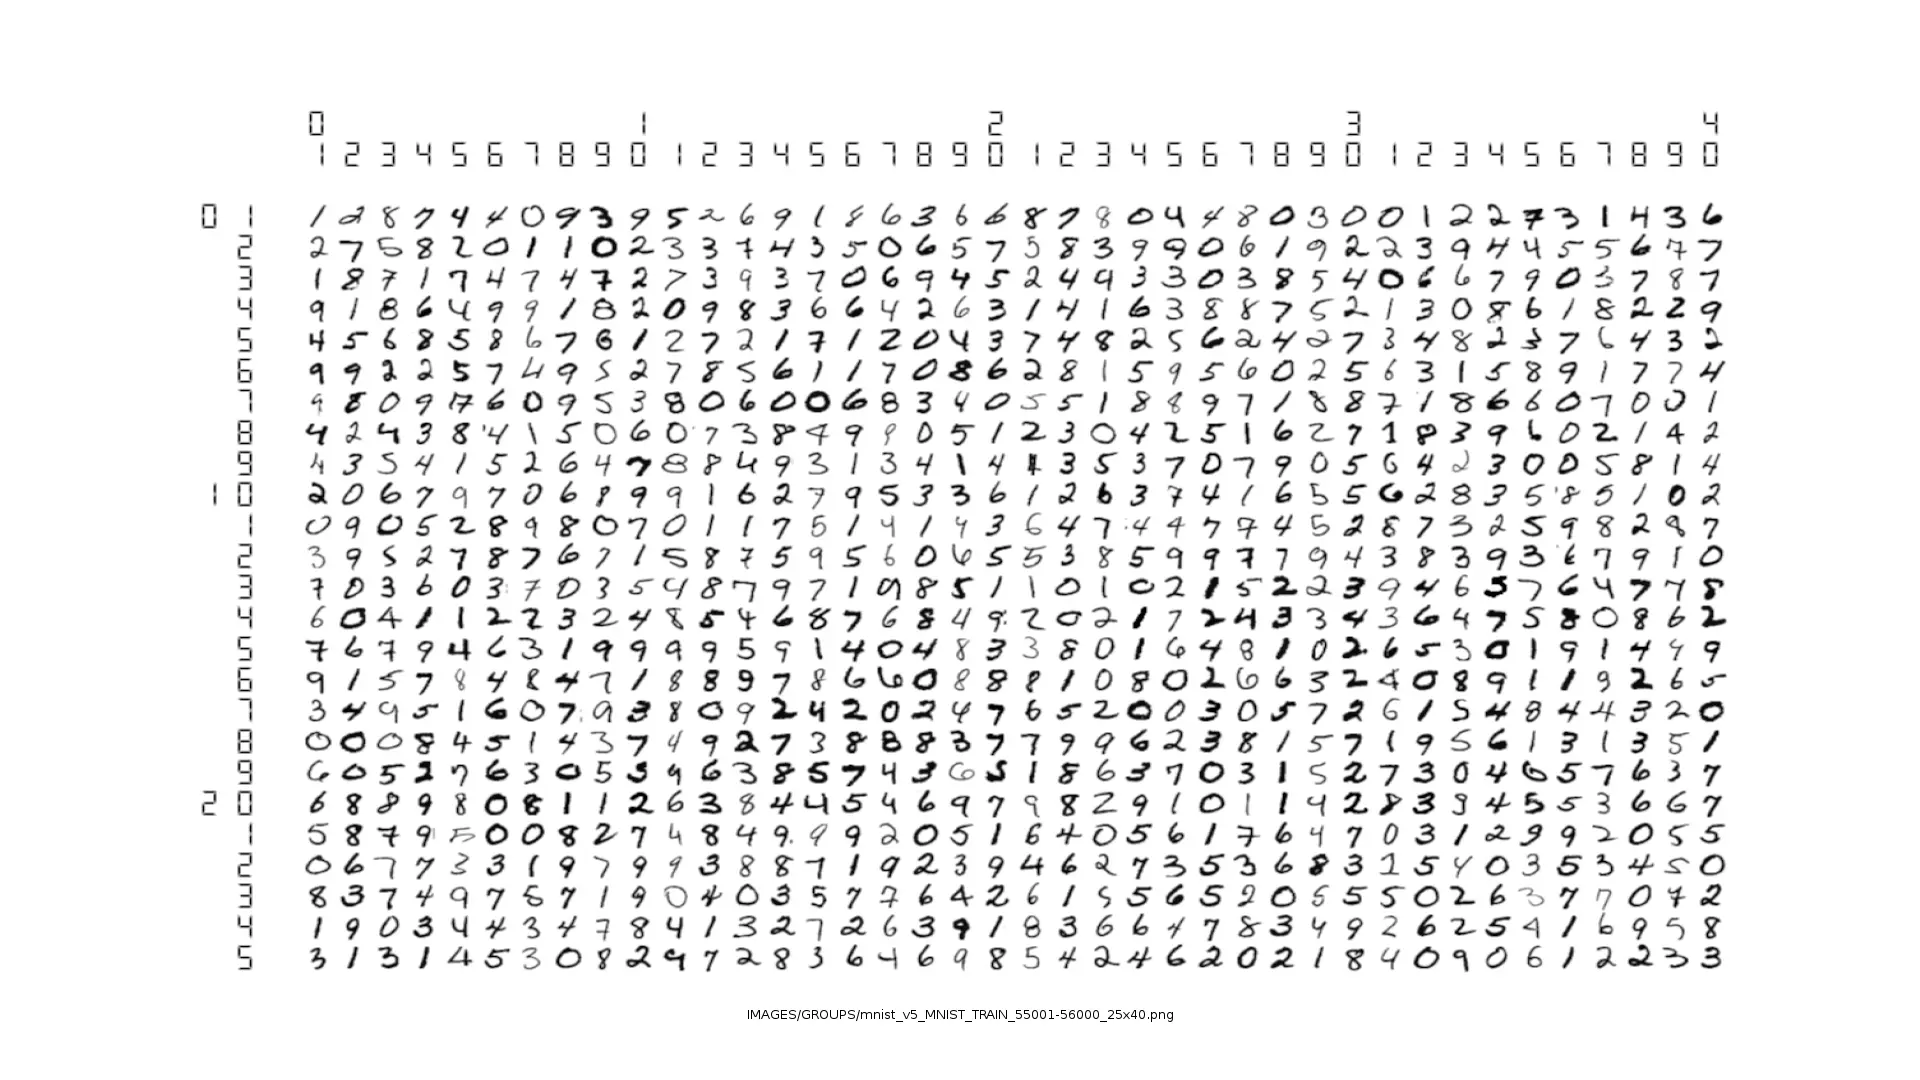 0 1 2 3 4
1 2 3 4 5 6 7 8 9 0 1 2 3 4 5 6 7 8 9 0 1 2 3 4 5 6 7 8 9 0 1 2 3 4 5 6 7 8 9 0
0 1 1 2 8 7 4 4 0 9 3 9 5 2 6 9 1 8 6 3 6 6 8 7 8 0 4 4 8 0 3 0 0 1 2 2 7 3 1 4 3 6
2 2 7 5 8 2 0 1 1 0 2 3 3 7 4 3 5 0 6 5 7 5 8 3 9 9 0 6 1 9 2 2 3 9 4 4 5 5 6 7 7
3 1 8 7 1 7 4 7 4 7 2 7 3 9 3 7 0 6 9 4 5 2 4 9 3 3 0 3 8 5 4 0 6 6 7 9 0 3 7 8 7
4 9 1 8 6 4 9 9 1 8 2 0 9 8 3 6 6 4 2 6 3 1 4 1 6 3 8 8 7 5 2 1 3 0 8 6 1 8 2 2 9
5 4 5 6 8 5 8 6 7 6 1 2 7 2 1 7 1 2 0 4 3 7 4 8 2 5 6 2 4 2 7 3 4 8 2 3 7 6 4 3 2
6 9 9 2 2 5 7 4 9 5 2 7 8 5 6 1 1 7 0 8 6 2 8 1 5 9 5 6 0 2 5 6 3 1 5 8 9 1 7 7 4
7 9 8 0 9 17 6 0 9 5 3 8 0 6 0 0 6 8 3 4 0 5 5 1 8 8 9 7 1 8 8 7 1 8 6 6 0 7 0 0 1
8 4 2 4 3 8 4 1 5 0 6 0 7 3 8 4 9 9 0 5 1 2 3 0 4 2 5 1 6 2 7 1 8 3 9 6 0 2 1 4 2
9 4 3 5 4 1 5 2 6 4 7 8 8 4 9 3 1 3 4 1 4 1 3 5 3 7 0 7 9 0 5 6 4 2 3 0 0 5 8 1 4
1 0 2 0 6 7 9 7 0 6 8 9 9 1 6 2 7 9 5 3 3 6 1 2 6 3 7 4 1 6 5 5 6 2 8 3 5 8 5 1 0 2
1 0 9 0 5 2 8 9 8 0 7 0 1 1 7 5 1 4 1 4 3 6 4 7 4 4 7 7 4 5 2 8 7 3 2 5 9 8 2 8 7
2 3 9 5 2 7 8 7 6 7 1 5 8 7 5 9 5 6 0 6 5 5 3 8 5 9 9 7 7 9 4 3 8 3 9 3 6 7 9 1 0
3 7 0 3 6 0 3 7 0 3 5 4 8 7 9 7 1 9 8 5 1 1 0 1 0 2 1 5 2 2 3 9 4 6 5 7 6 4 7 7 8
4 6 0 4 1 1 2 2 3 2 4 8 5 4 6 8 7 6 8 4 9 2 0 2 1 7 2 4 3 3 4 3 6 4 7 5 8 0 8 6 2
5 7 6 7 9 4 6 3 1 9 9 9 9 5 9 1 4 0 4 8 3 3 8 0 1 6 4 8 1 0 2 6 5 3 0 1 9 1 4 9 9
6 9 1 5 7 8 4 8 4 7 1 8 8 9 7 8 6 6 0 8 8 8 1 0 8 0 2 6 6 3 2 4 0 8 9 1 1 9 2 6 5
7 3 4 9 5 1 6 0 7 9 3 8 0 9 2 4 2 0 2 4 7 6 5 2 0 0 3 0 5 7 2 6 1 5 4 8 4 4 3 2 0
8 0 0 0 8 4 5 1 4 3 7 4 9 2 7 3 8 8 8 3 7 7 9 9 6 2 3 8 1 5 7 1 9 5 6 1 3 1 3 5 1
9 6 0 5 2 7 6 3 0 5 3 9 6 3 8 5 7 4 3 6 5 1 8 6 3 7 0 3 1 5 2 7 3 0 4 6 5 7 6 3 7
2 0 6 8 8 9 8 0 8 1 1 2 6 3 8 4 4 5 4 6 9 7 9 8 2 9 1 0 1 1 4 2 8 3 9 4 5 5 3 6 6 7
1 5 8 7 9 5 0 0 8 2 7 4 8 4 9 9 9 2 0 5 1 6 4 0 5 6 1 7 6 4 7 0 3 1 2 9 9 2 0 5 5
2 0 6 7 7 3 3 1 9 7 9 9 3 8 8 7 1 9 2 3 9 4 6 2 7 3 5 3 6 8 3 1 5 4 0 3 5 3 4 5 0
3 8 3 7 4 9 7 8 7 1 9 0 4 0 3 5 7 7 6 4 2 6 1 5 5 6 5 2 0 5 5 5 0 2 6 3 7 7 0 7 2
4 1 9 0 3 4 4 3 4 7 8 4 1 3 2 7 2 6 3 9 1 8 3 6 6 4 7 8 3 4 9 2 6 2 5 4 1 6 9 5 8
5 3 1 3 1 4 5 3 0 8 2 9 7 2 8 3 6 4 6 9 8 5 4 2 4 6 2 0 2 1 8 4 0 9 0 6 1 2 2 3 3
IMAGES/GROUPS/mnist_v5_MNIST_TRAIN_55001-56000_25x40.png